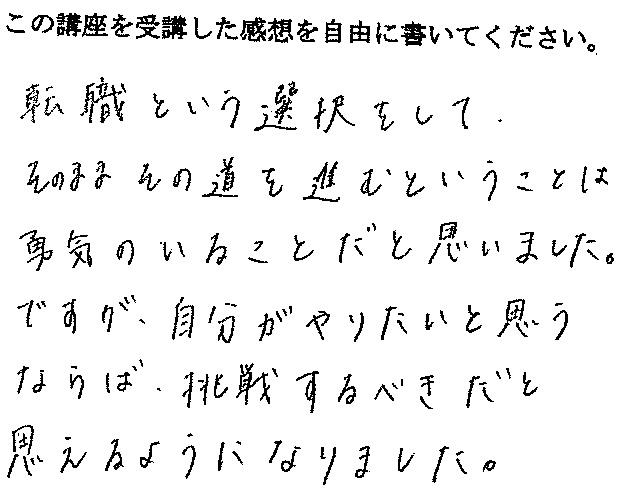 この講座を受講した感想を自由に書いてください。
転職という選択をして、
そのままその道を進むということは
勇気のいることだと思いました。
ですが、自分がやりたいと思う
ならば、挑戦するべきだと
思えるようになりました。